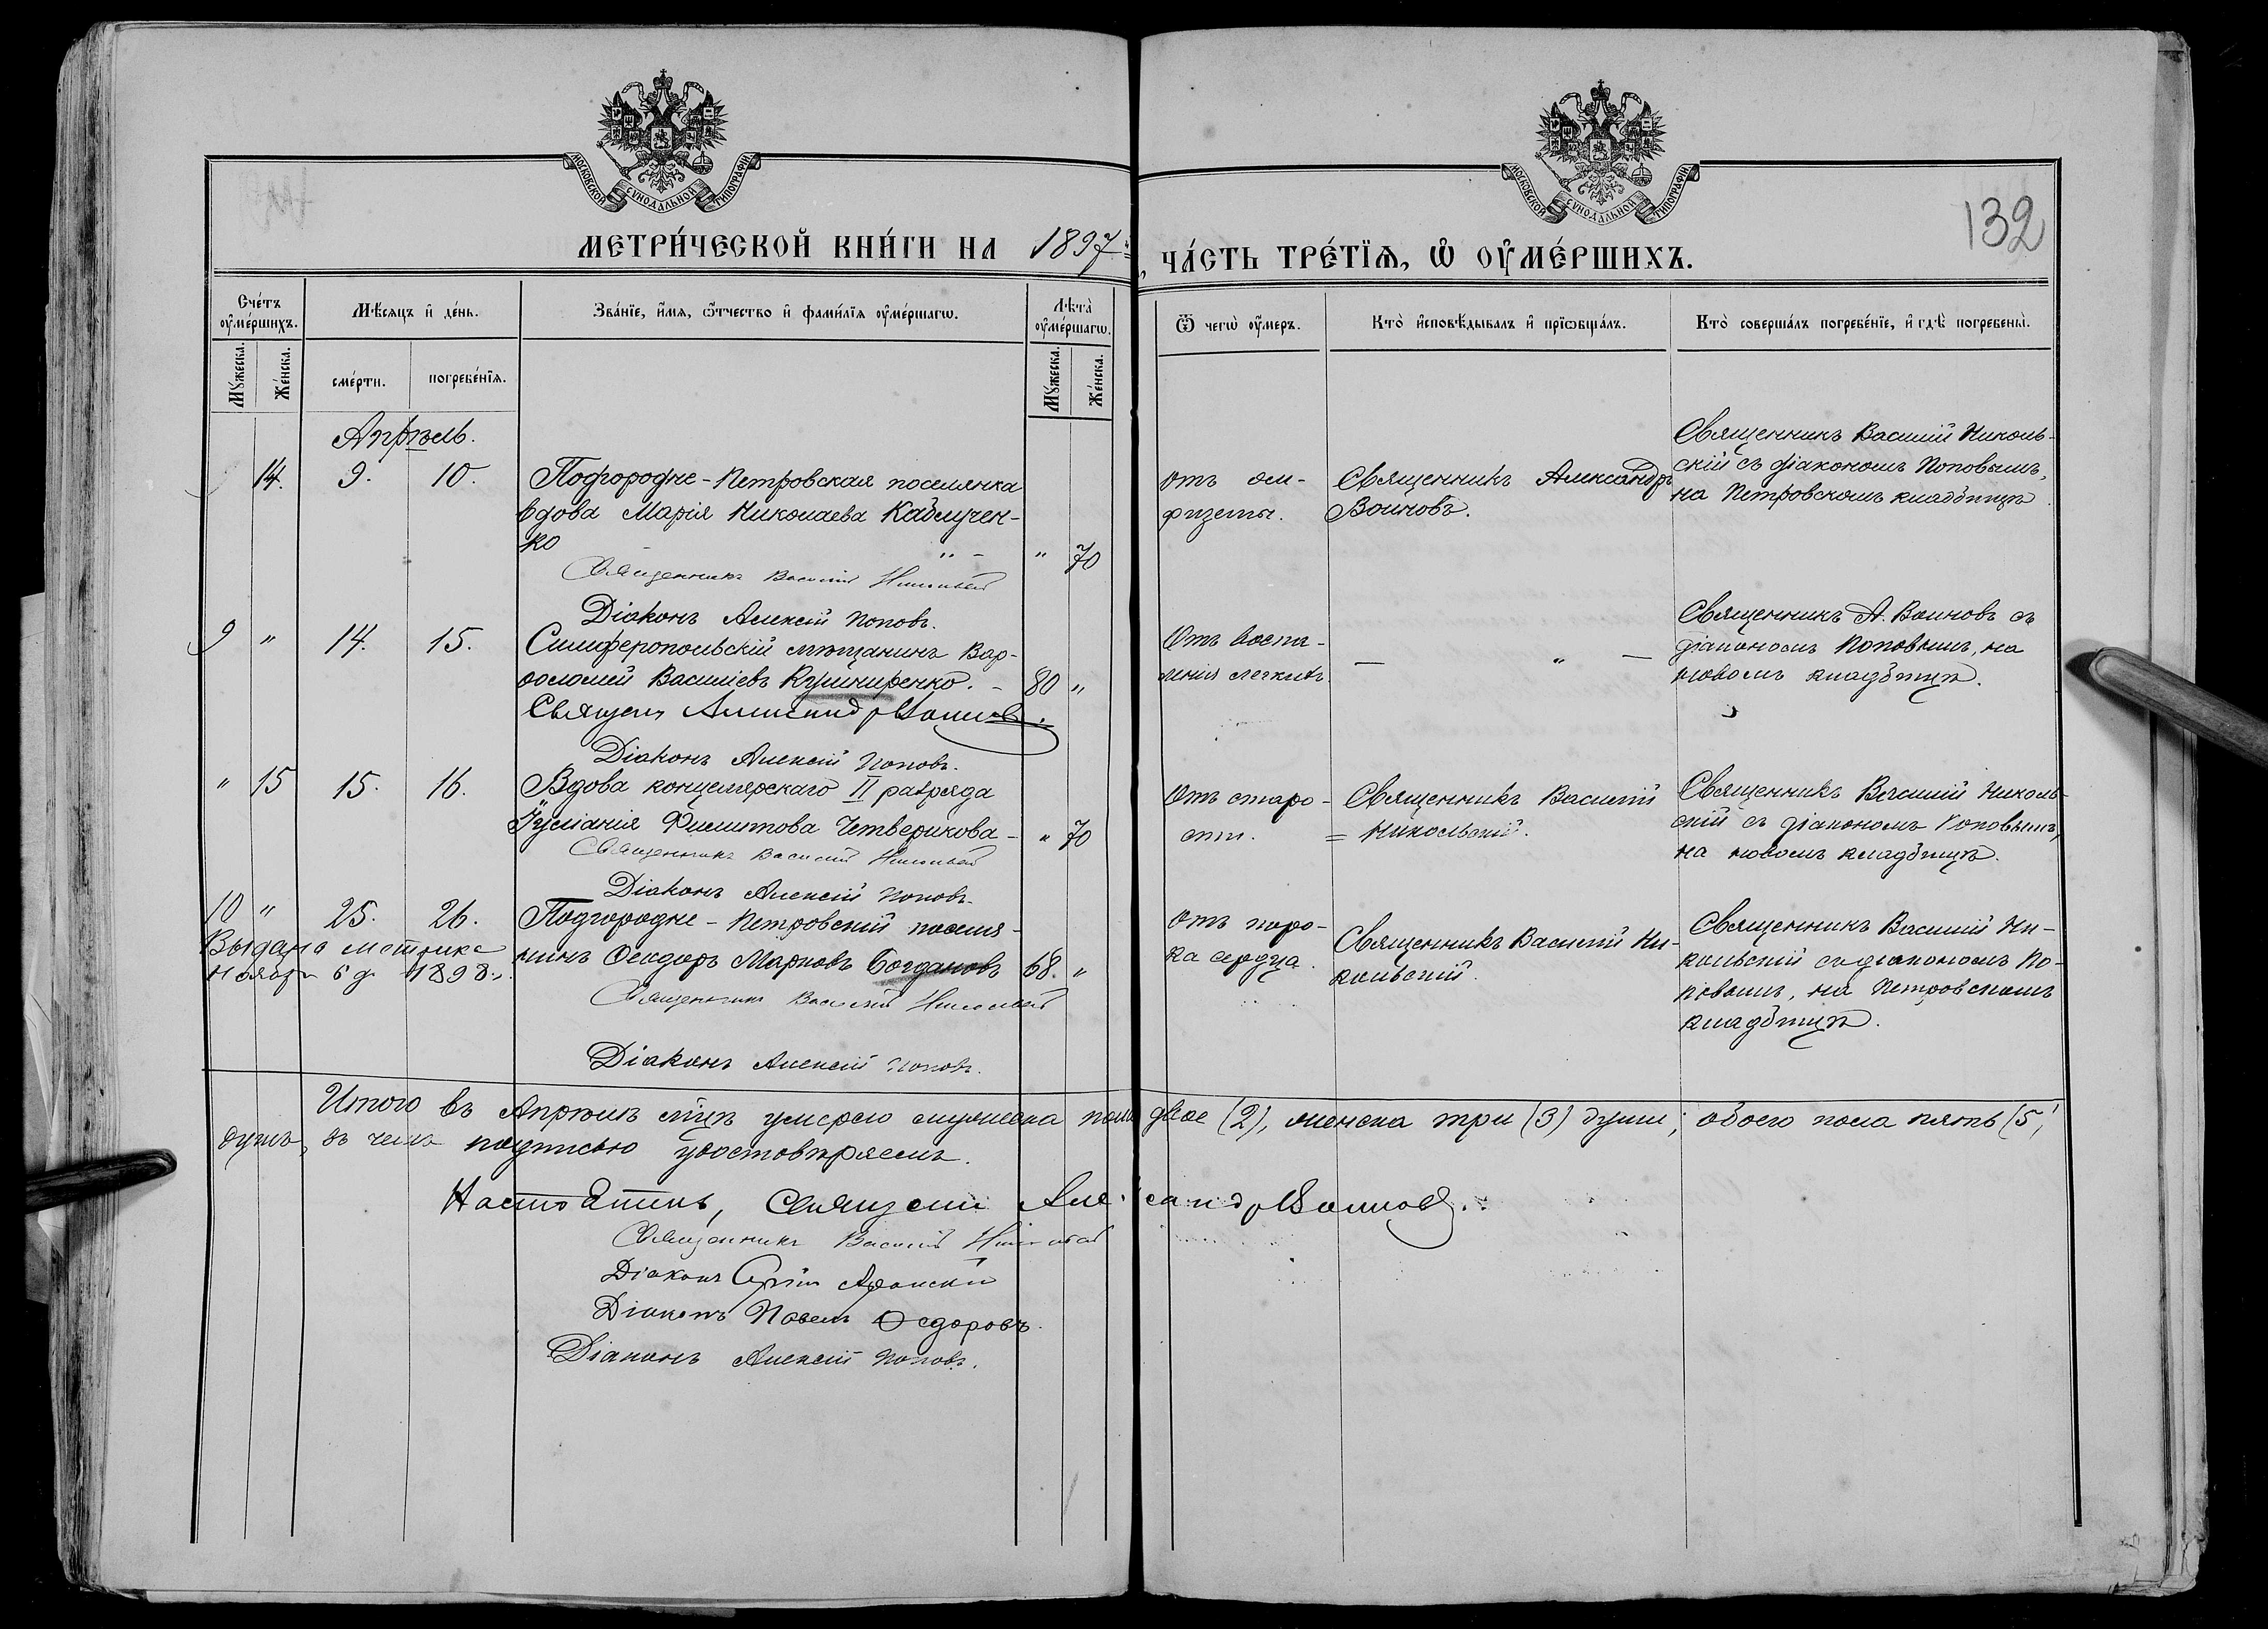 МОСКОВСКОЙ СУНОДАЛЬНОЙ ТИПОГРАФІИ
МОСКОВСКОЙ СУНОДАЛЬНОЙ ТИПОГРАФІИ
132
МЕТРИ́ЧЕСКОЙ КНИ́ГИ НА 1897
ЧА́СТЬ ТРЕ́ТЇѦ, Ѽ ОУМЕ́РШИХЪ.
Сче́тъ оумє́ршихъ.
Мꙋ́жеска.
Же́нска.
Мѣ́сяцъ и҆ де́нь.
сме́рти.
погребе́нїя.
Зва́нїе, и҆́мя, ѻ҆́тчество и҆ фами́лїя оумє́ршагѡ.
Лѣ́та оумє́ршагѡ.
Мꙋ́жеска.
Же́нска.
Ѿ чегѡ̀ оу҆́меръ.
Кто̀ и҆сповѣ́дывалъ и҆ прїѡбща́лъ.
Кто̀ соверша́лъ погребе́нїе, и҆ гдѣ̀ погребены̀.
Апрѣль.
14. 9. 10.
Подгородне-Петровская поселянка
вдова Марія Николаева Каблучен-
ко " 70
Священникъ Василій Никольскій
Діаконъ Алексій Поповъ.
отъ эм-
физемы.
Священникъ Александръ
Воиновъ.
Священникъ Василій Николь-
скій съ діакономъ Поповымъ,
на Петровскомъ кладбищѣ
9 " 14. 15.
Симферопольскій мѣщанинъ Вар-
ѳоломей Василіевъ Кушниренко. 80 "
Священ Александръ Воиновъ.
Діаконъ Алексій Поповъ.
Отъ воспа-
ленія легкихъ
— " —
Священникъ А. Воиновъ съ
діакономъ Поповымъ, на
новомъ кладбищѣ.
" 15 15. 16.
Вдова канцелярскаго II разряда
Іуліанія Филиппова Четверикова " 70
Священникъ Василій Никольскій
Діаконъ Алексій Поповъ.
Отъ старо-
сти.
Священникъ Василій
Никольскій.
Священникъ Василій Николь-
скій съ діакономъ Поповымъ,
на новомъ кладбищѣ.
10 " 25. 26.
Выдана метрика
Ноября 6 д 1898 г.
Подгородне-Петровскій поселя-
нинъ Ѳеодоръ Марковъ Богдановъ 68. "
Священникъ Василій Никольскій
Діаконъ Алексій Поповъ.
отъ поро-
ка сердца.
Священникъ Василій Ни-
кольскій.
Священникъ Василій Ни-
кольскій съ діакономъ По-
повымъ, на Петровскомъ
кладбищѣ.
Итого въ Апрѣлѣ мѣсцѣ умерло мужеска пола двое (2), женска три (3) души; обоего пола пять (5)
душъ, въ чемъ подписью удостовѣряемъ.
Настоятель, Священ Александръ Воиновъ.
Священникъ Василій Никольскій
Діаконъ Сергій
Діаконъ Павелъ Ѳедоровъ.
Діаконъ Алексій Поповъ.